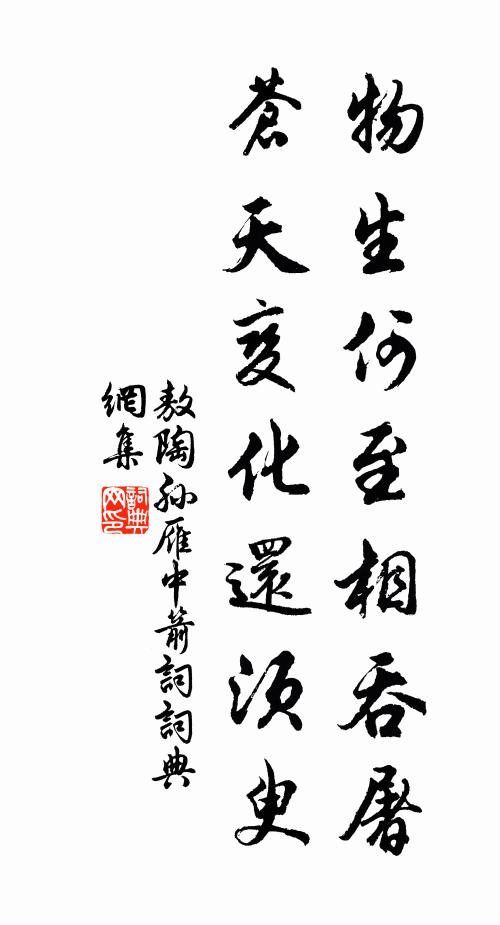 物生何至相吞屠
蒼天变化還須臾
敖陶孙雁中箭詞詞典
網集
詞典网印